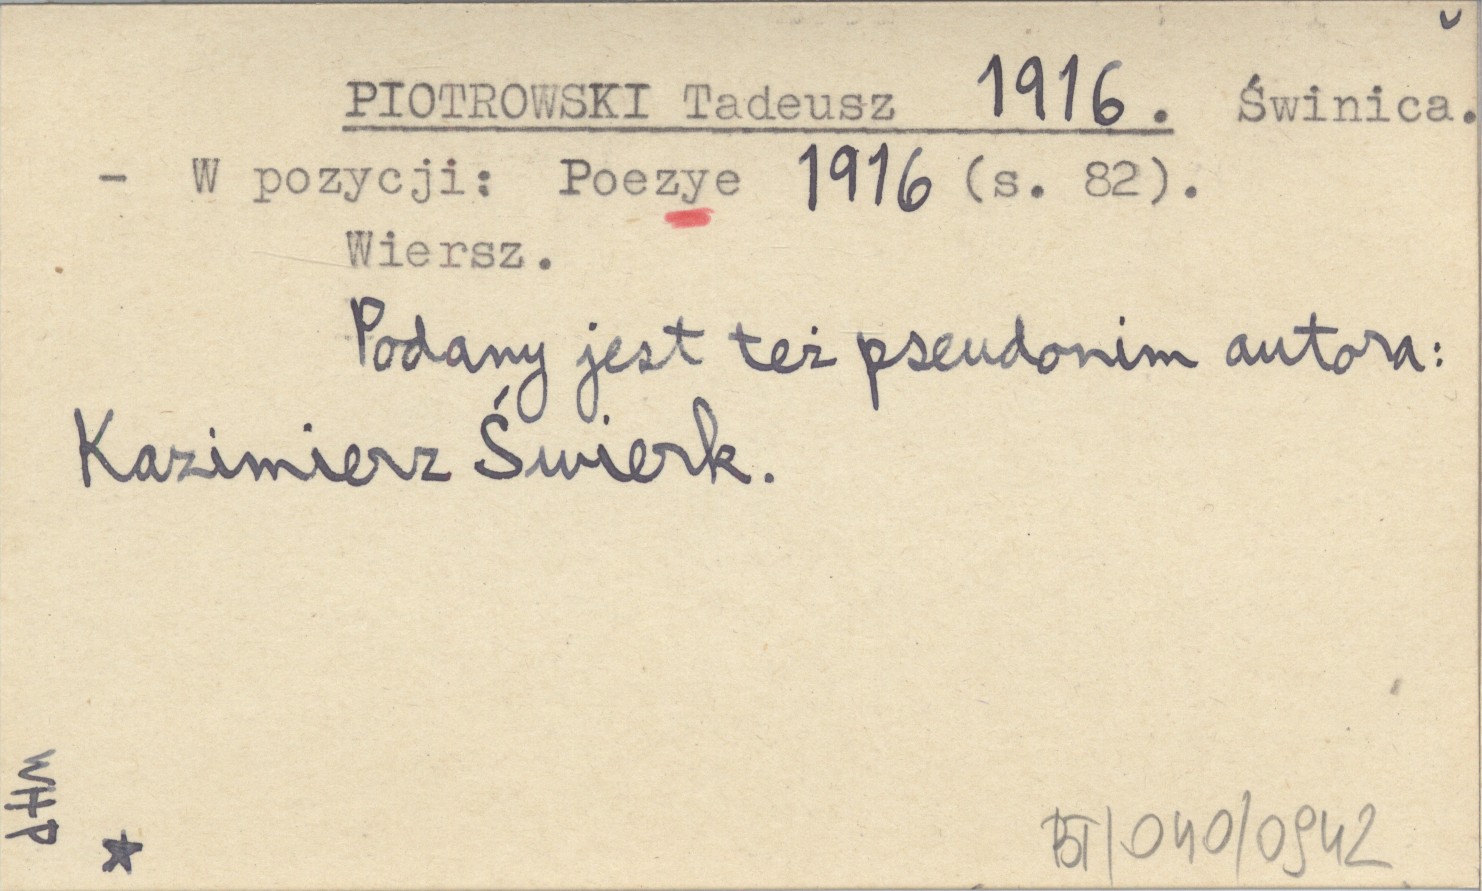 PIOTROWSKI Tadeusz 1916. Świnica.
- W pozycji: Poezye 1916 (s. 82).
Wiersz.
Podany jest też pseudonim autora:
Kazimierz Świerk.
WHP
BT/040/0942